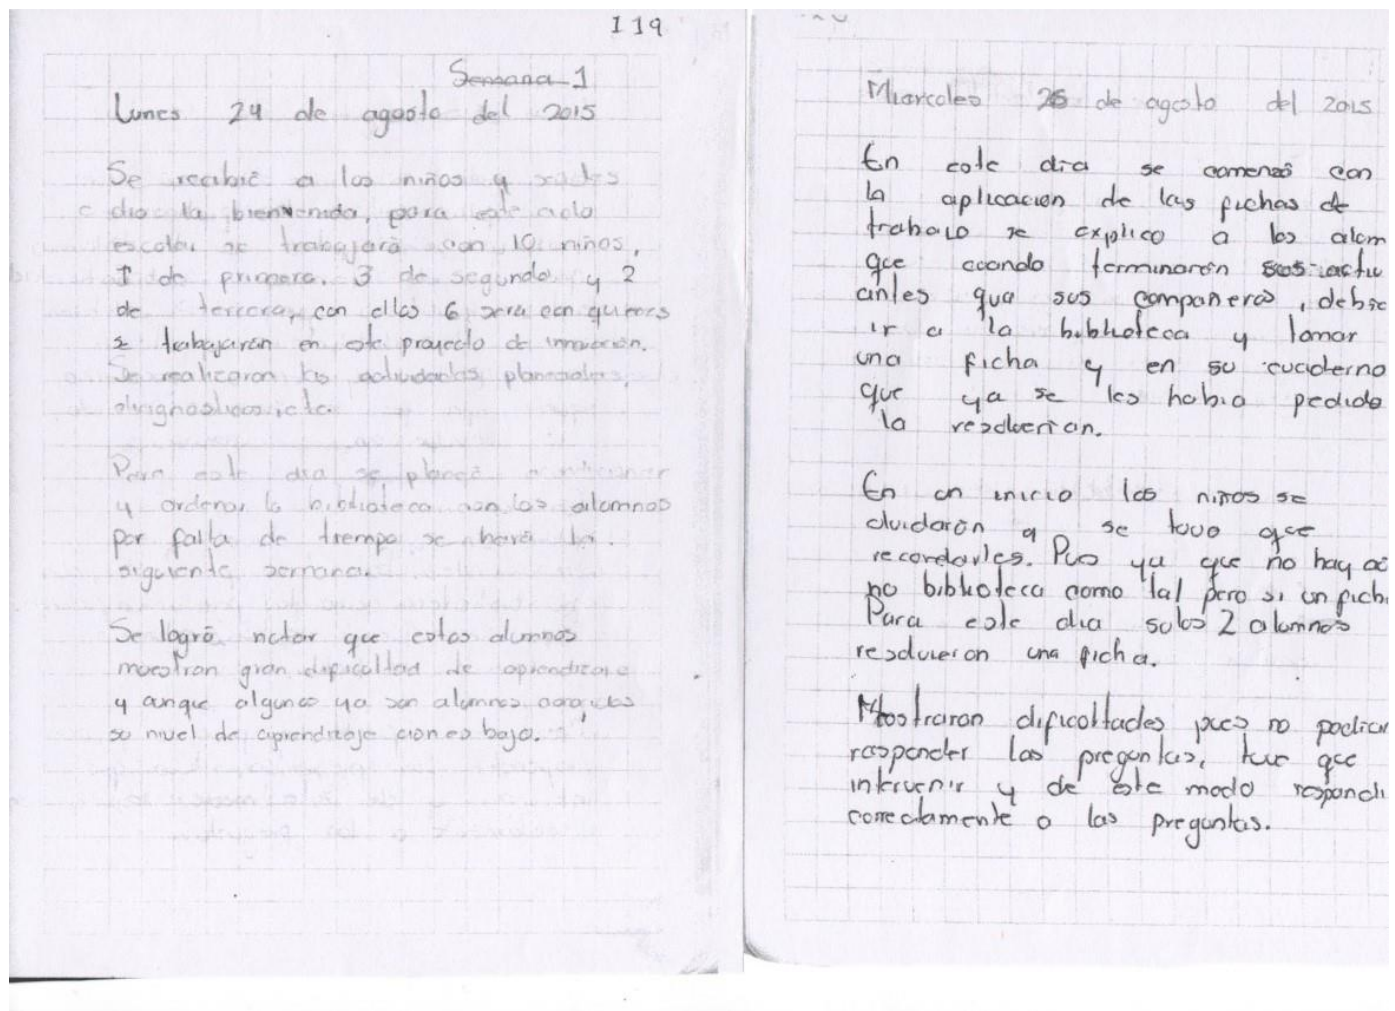 119
Semana 1
Lunes 24 de agosto del 2015
Se recibió a los niños y se les
dio la bienvenida, para este ciclo
escolar se trabajará con 10 niños,
1 de primero, 3 de segundo y 2
de tercero, con ellos 6 sera con quienes
se trabajarán en este proyecto de innovación.
Se realizaron las actividades planeadas,
diagnosticos, etc.
Para este dia se planeó
y ordenar la biblioteca con los alumnos
por falta de tiempo se hará la
siguiente semana.
Se logró notar que estos alumnos
muestran gran dificultad de aprendizaje
y aunque algunos ya son alumnos
su nivel de aprendizaje aun es bajo.
Miercoles 26 de agosto del 2015
En este dia se comenzó con
la aplicacion de las fichas de
trabajo se explico a los alum
que cuando terminarón sus activ
antes que sus compañeros, debie
ir a la biblioteca y tomar
una ficha y en su cuaderno
que ya se les habia pedido
la resolverian.
En un inicio los niños se
olvidarón y se tuvo que
recordarles. Pues ya que no hay
no biblioteca como tal pero si un fich
Para este dia solos 2 alumnos
resolvieron una ficha.
Mostraron dificultades pues no podian
responder las preguntas, tuve que
intervenir y de este modo respondi
correctamente a las preguntas.